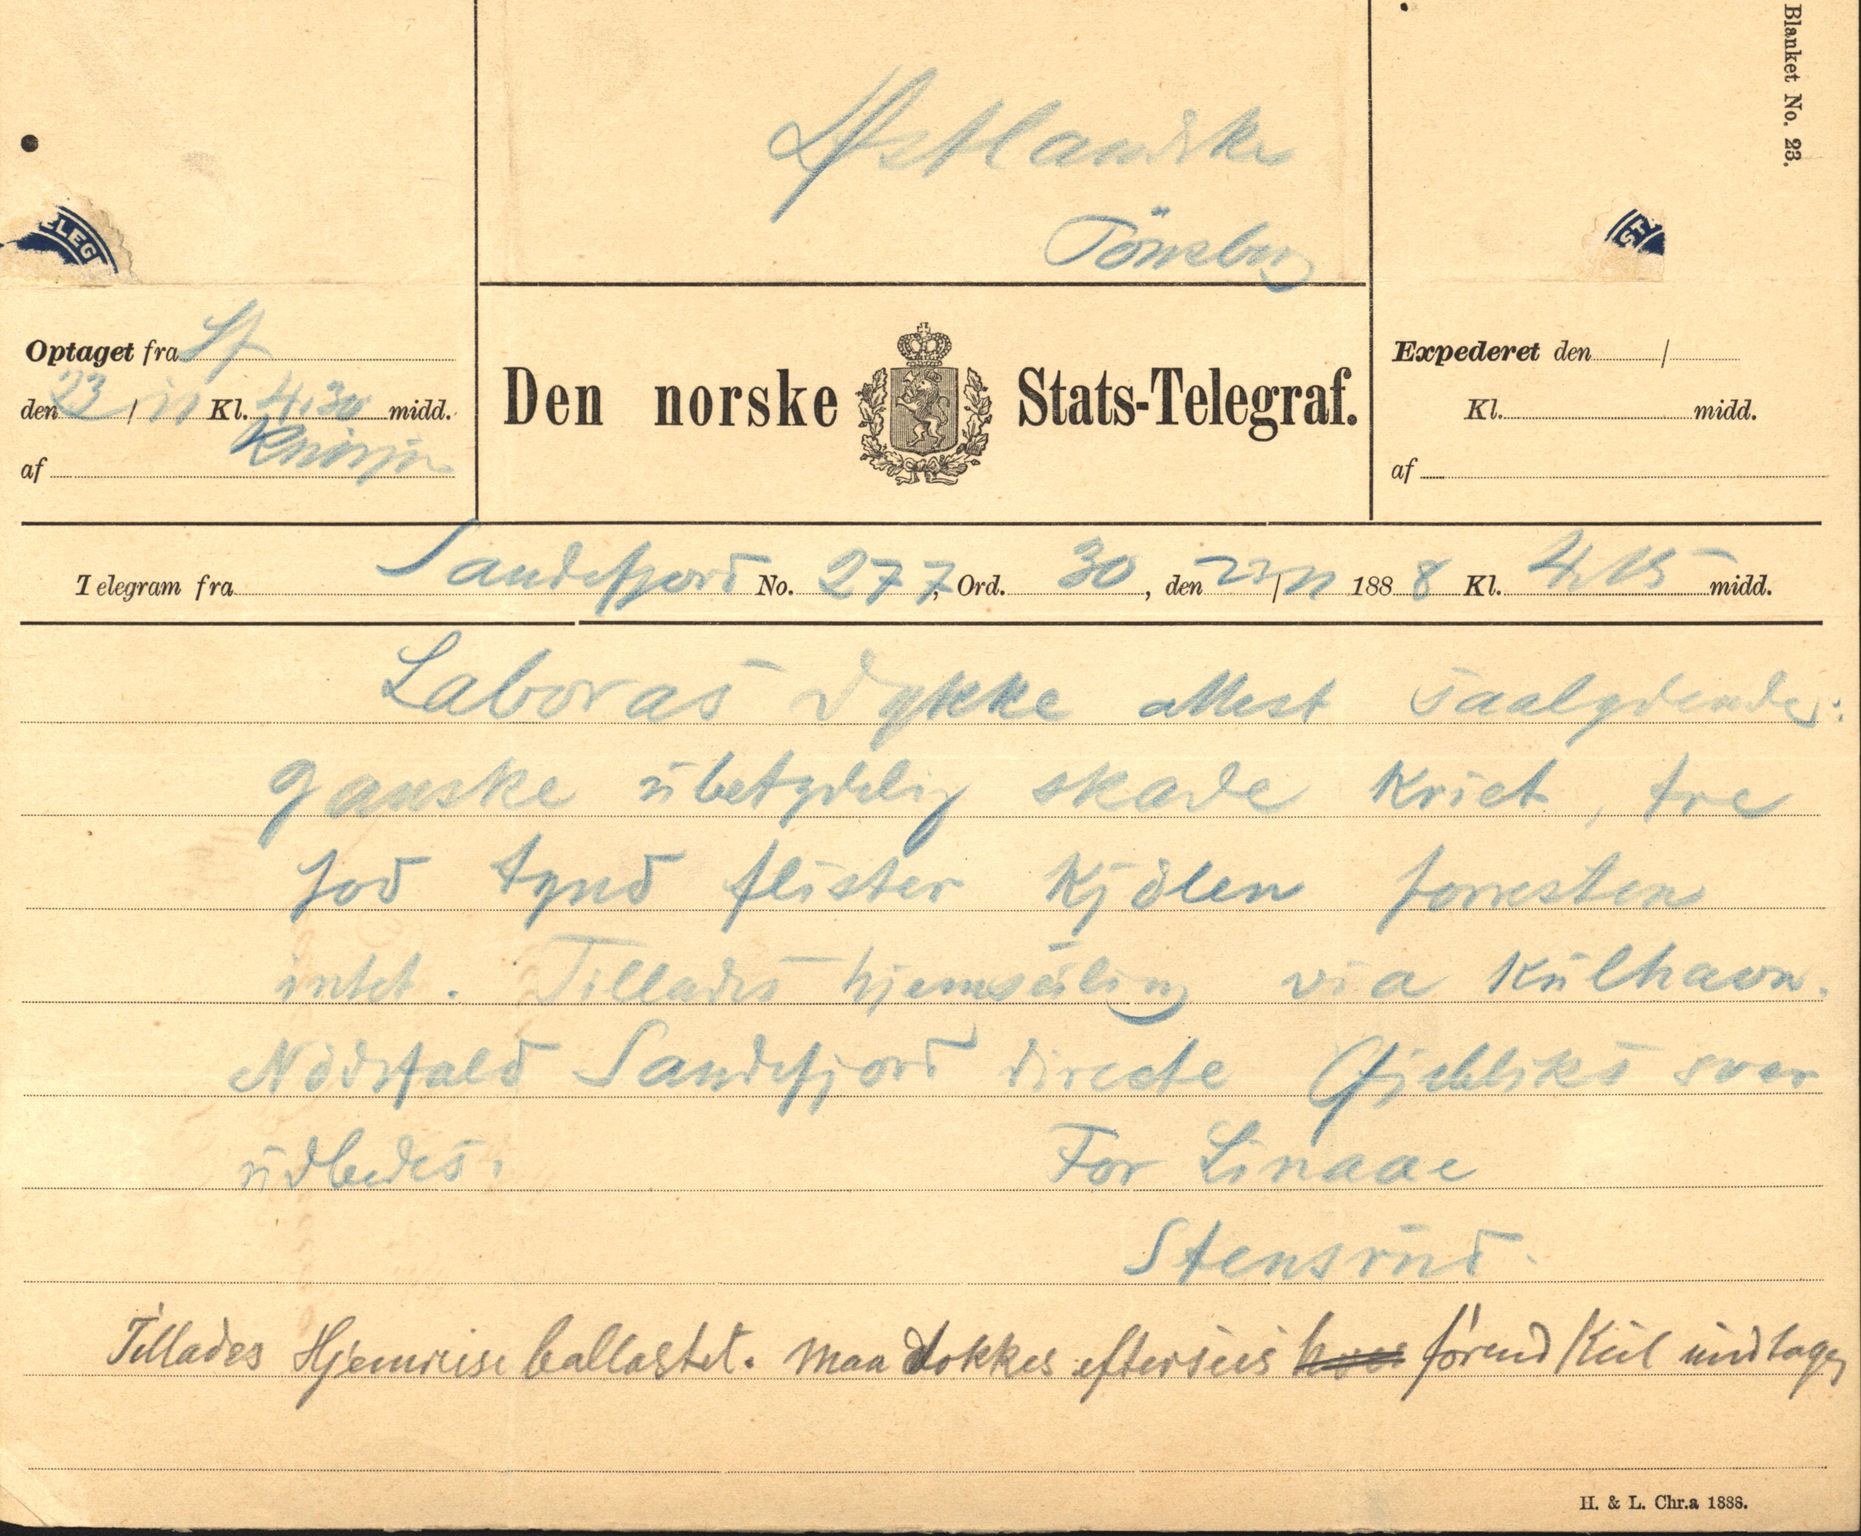 Blanket No. 23.
Østlandske
Tönsberg
ELEG
ST
Optaget fra Sf
den 23 / 11 Kl. 4.30 midd.
af
Den norske Stats-Telegraf.
Expederet den /
Kl. midd.
af
Telegram fra Sandefjord No. 277, Ord. 30, den 23/11 1888 Kl. 4,15 midd.
Laboras dykke attest saalydende:
ganske ubetydelig skade Kriet, tre
fod tynd flister Kjölen forresten
intet. Tillades hjemseiling via Kulhavn.
Nödsfald Sandefjord directe Öjebliks svar
udbedes. For Linaae
Stensrud.
Tillades Hjemreise ballastet. Maa dokkes efterseis förend Kul indtages
H. & L. Chr.a 1888.